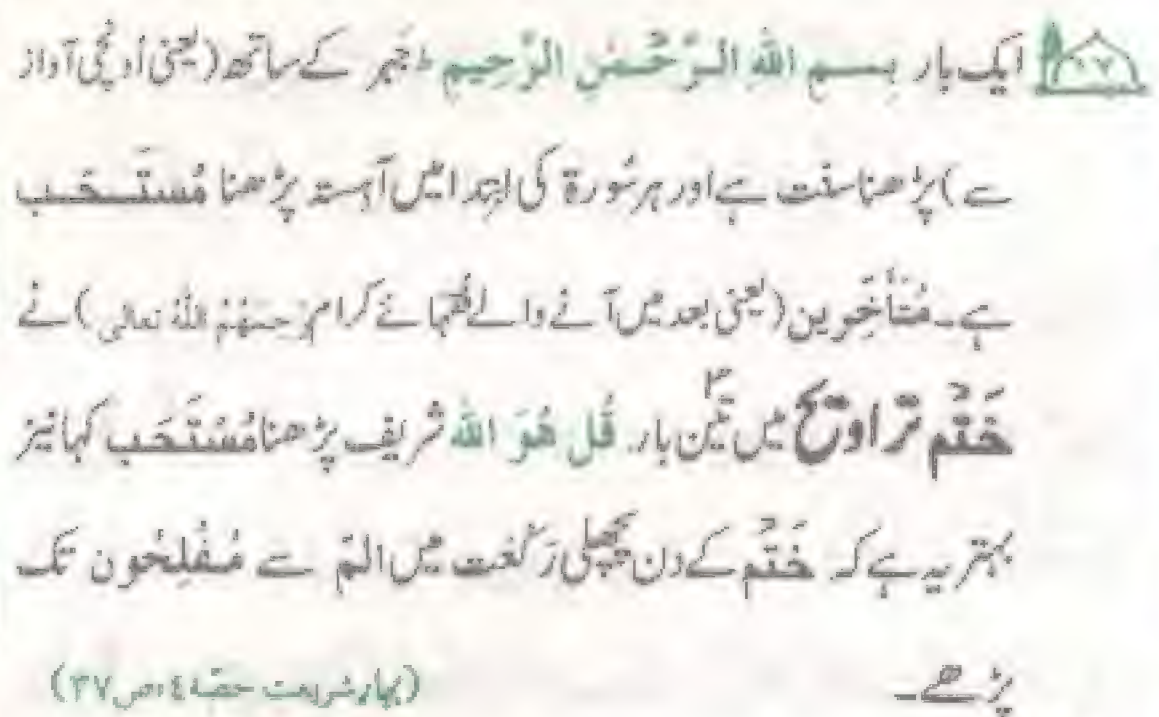 ﴿۱۷﴾ ایک بار بِسمِ اللہِ الرَّحْمٰنِ الرَّحِیمِ ط جَہر کے ساتھ (یعنی اُونچی آواز
سے) پڑھنا سنّت ہے اور ہر سُورۃ کی ابتدا میں آہستہ پڑھنا مُستَحَب
ہے۔ مُتَأَخِّرین (یعنی بعد میں آنے والے فُقَہائے کرام رَحِمَہُمُ اللہُ تعالٰی) نے
خَتْمِ تراویح میں تین بار قُل ھُوَ اللہ شریف پڑھنا مُسْتَحَب کہا نیز
بہتر یہ ہے کہ خَتْم کے دن پچھلی رَکْعت میں المّ سے مُفْلِحُون تک
پڑھے۔ (بہارِ شریعت حصّہ ٤ ص ٣٧)